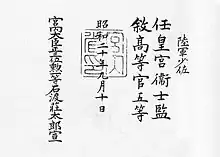 陸軍少佐
任皇宮衛士監
敍高等官五等
昭和二十年九月十日
宮内大臣正三位勲一等石渡莊太郎宣